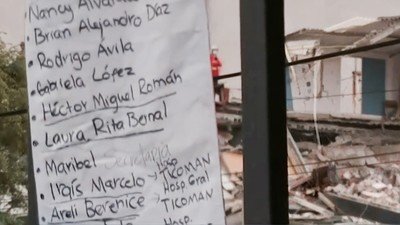 Nancy
• Brian Alejandro Díaz
• Rodrigo Avila
• Gabriela López
• Héctor Miguel Román
• Laura Rita
• Maribel Secretaria
• Irais Marcelo → Hosp TICOMAN
Hosp Gral
• Areli Berenice → TICOMAN
Hosp.